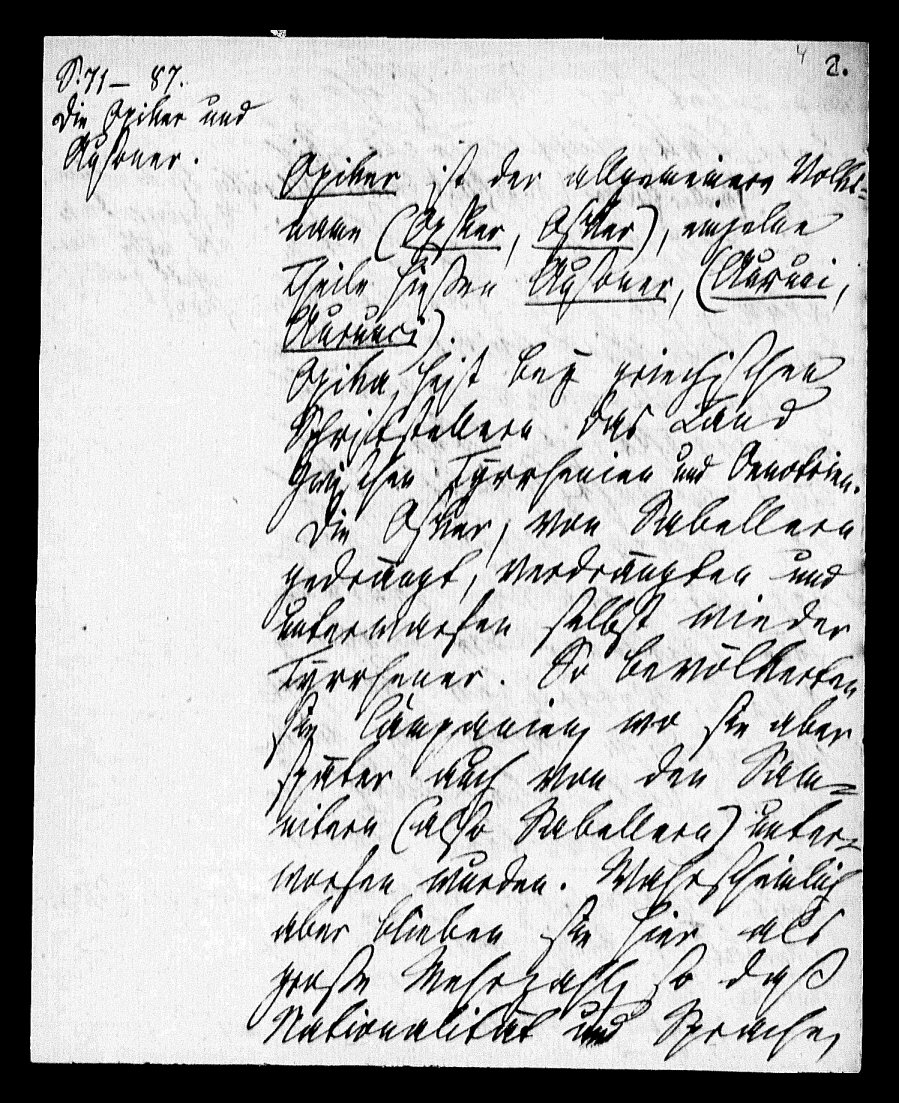 2.
S. 71– 87.
Die Opiker und
Ausoner.
Opiker ist der allgemeinere Volks-
name (Opsker, Osker), einzelne
Theile hießen Ausoner, (Auruni,
Aurunci).
Opika heist bey griechischen
Schriftstellern das Land
zwischen Tyrrhenien und Oenotrien.
Die Osker, von Sabellern
gedrängt, verdrängten und
unterwarfen selbst wieder
Tyrrhener. So bevölkerten
sie Campanien, wo sie aber
später auch von den Sam=
nitern (also Sabellern) unter-
worfen wurden. Wahrscheinlich
aber blieben sie hier als
große Mehrzahl, so daß
Nationalität und Sprache,